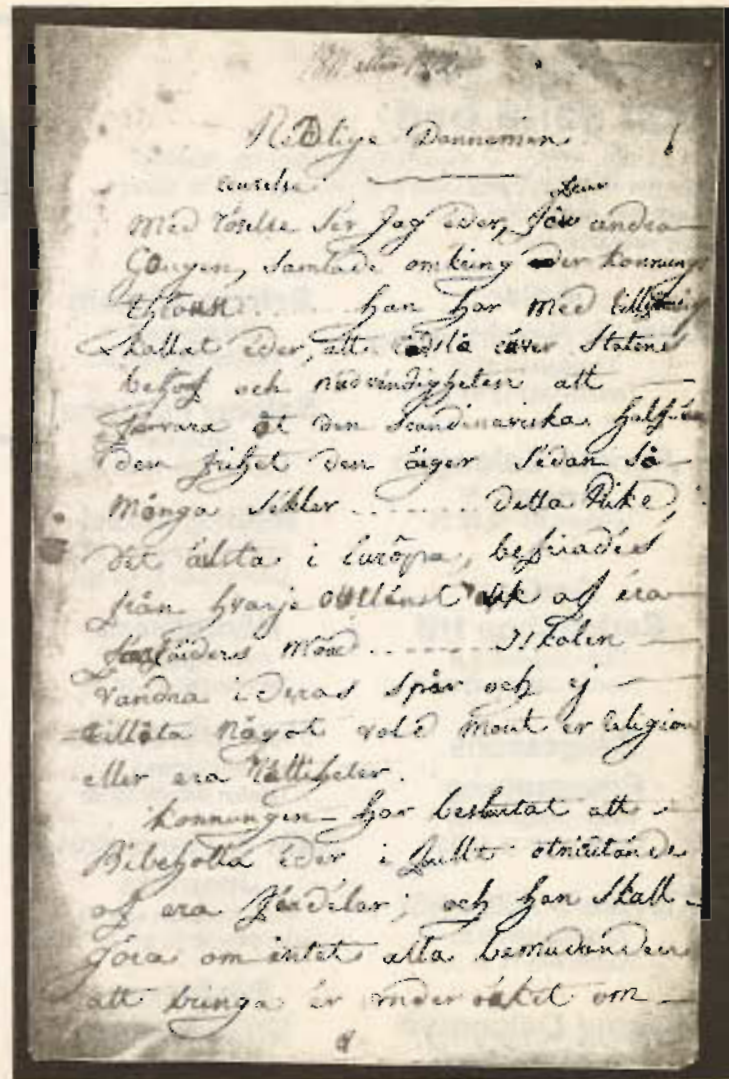 1811 eller 1812.
Redlige Dannemän
6
rörelse
Med röelse Ser Jag eder, för andra
Gongen, samlade omkring eder konnungs
thron ..... han har med
skallat eder, att rodslå över Statens
behof och nüdvindigheten att
försvara åt den Scandinaviska halfön
den frihet den äger sedan så
mönga sekler ........ detta Rike,
det älsta i Euröpa, befriades
från hvarje af era
mod ........ I skolen
vandra i deras spår och ej
tillåta något vold mout er religion
eller era Rättiheter.
konnungen har beslutat att
Bibeholla eder i fullt otniutande
af era fördelar; och han skall
föra om intet alla bemudanden
att bringa er under oket om